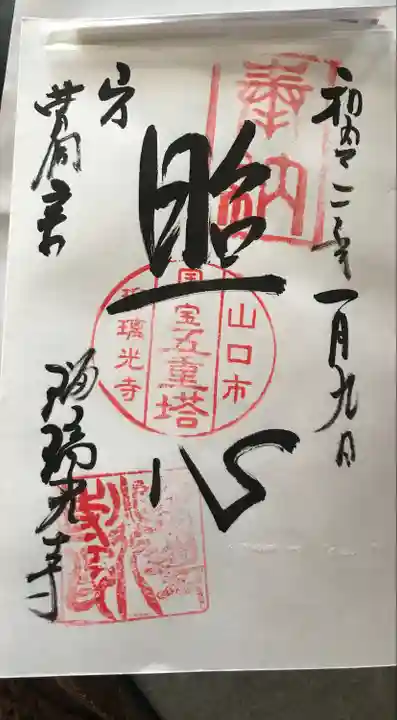 令和二年一月九日
奉納
照心
山口市
国宝五重塔
瑠璃光寺
曹洞宗
瑠璃光寺